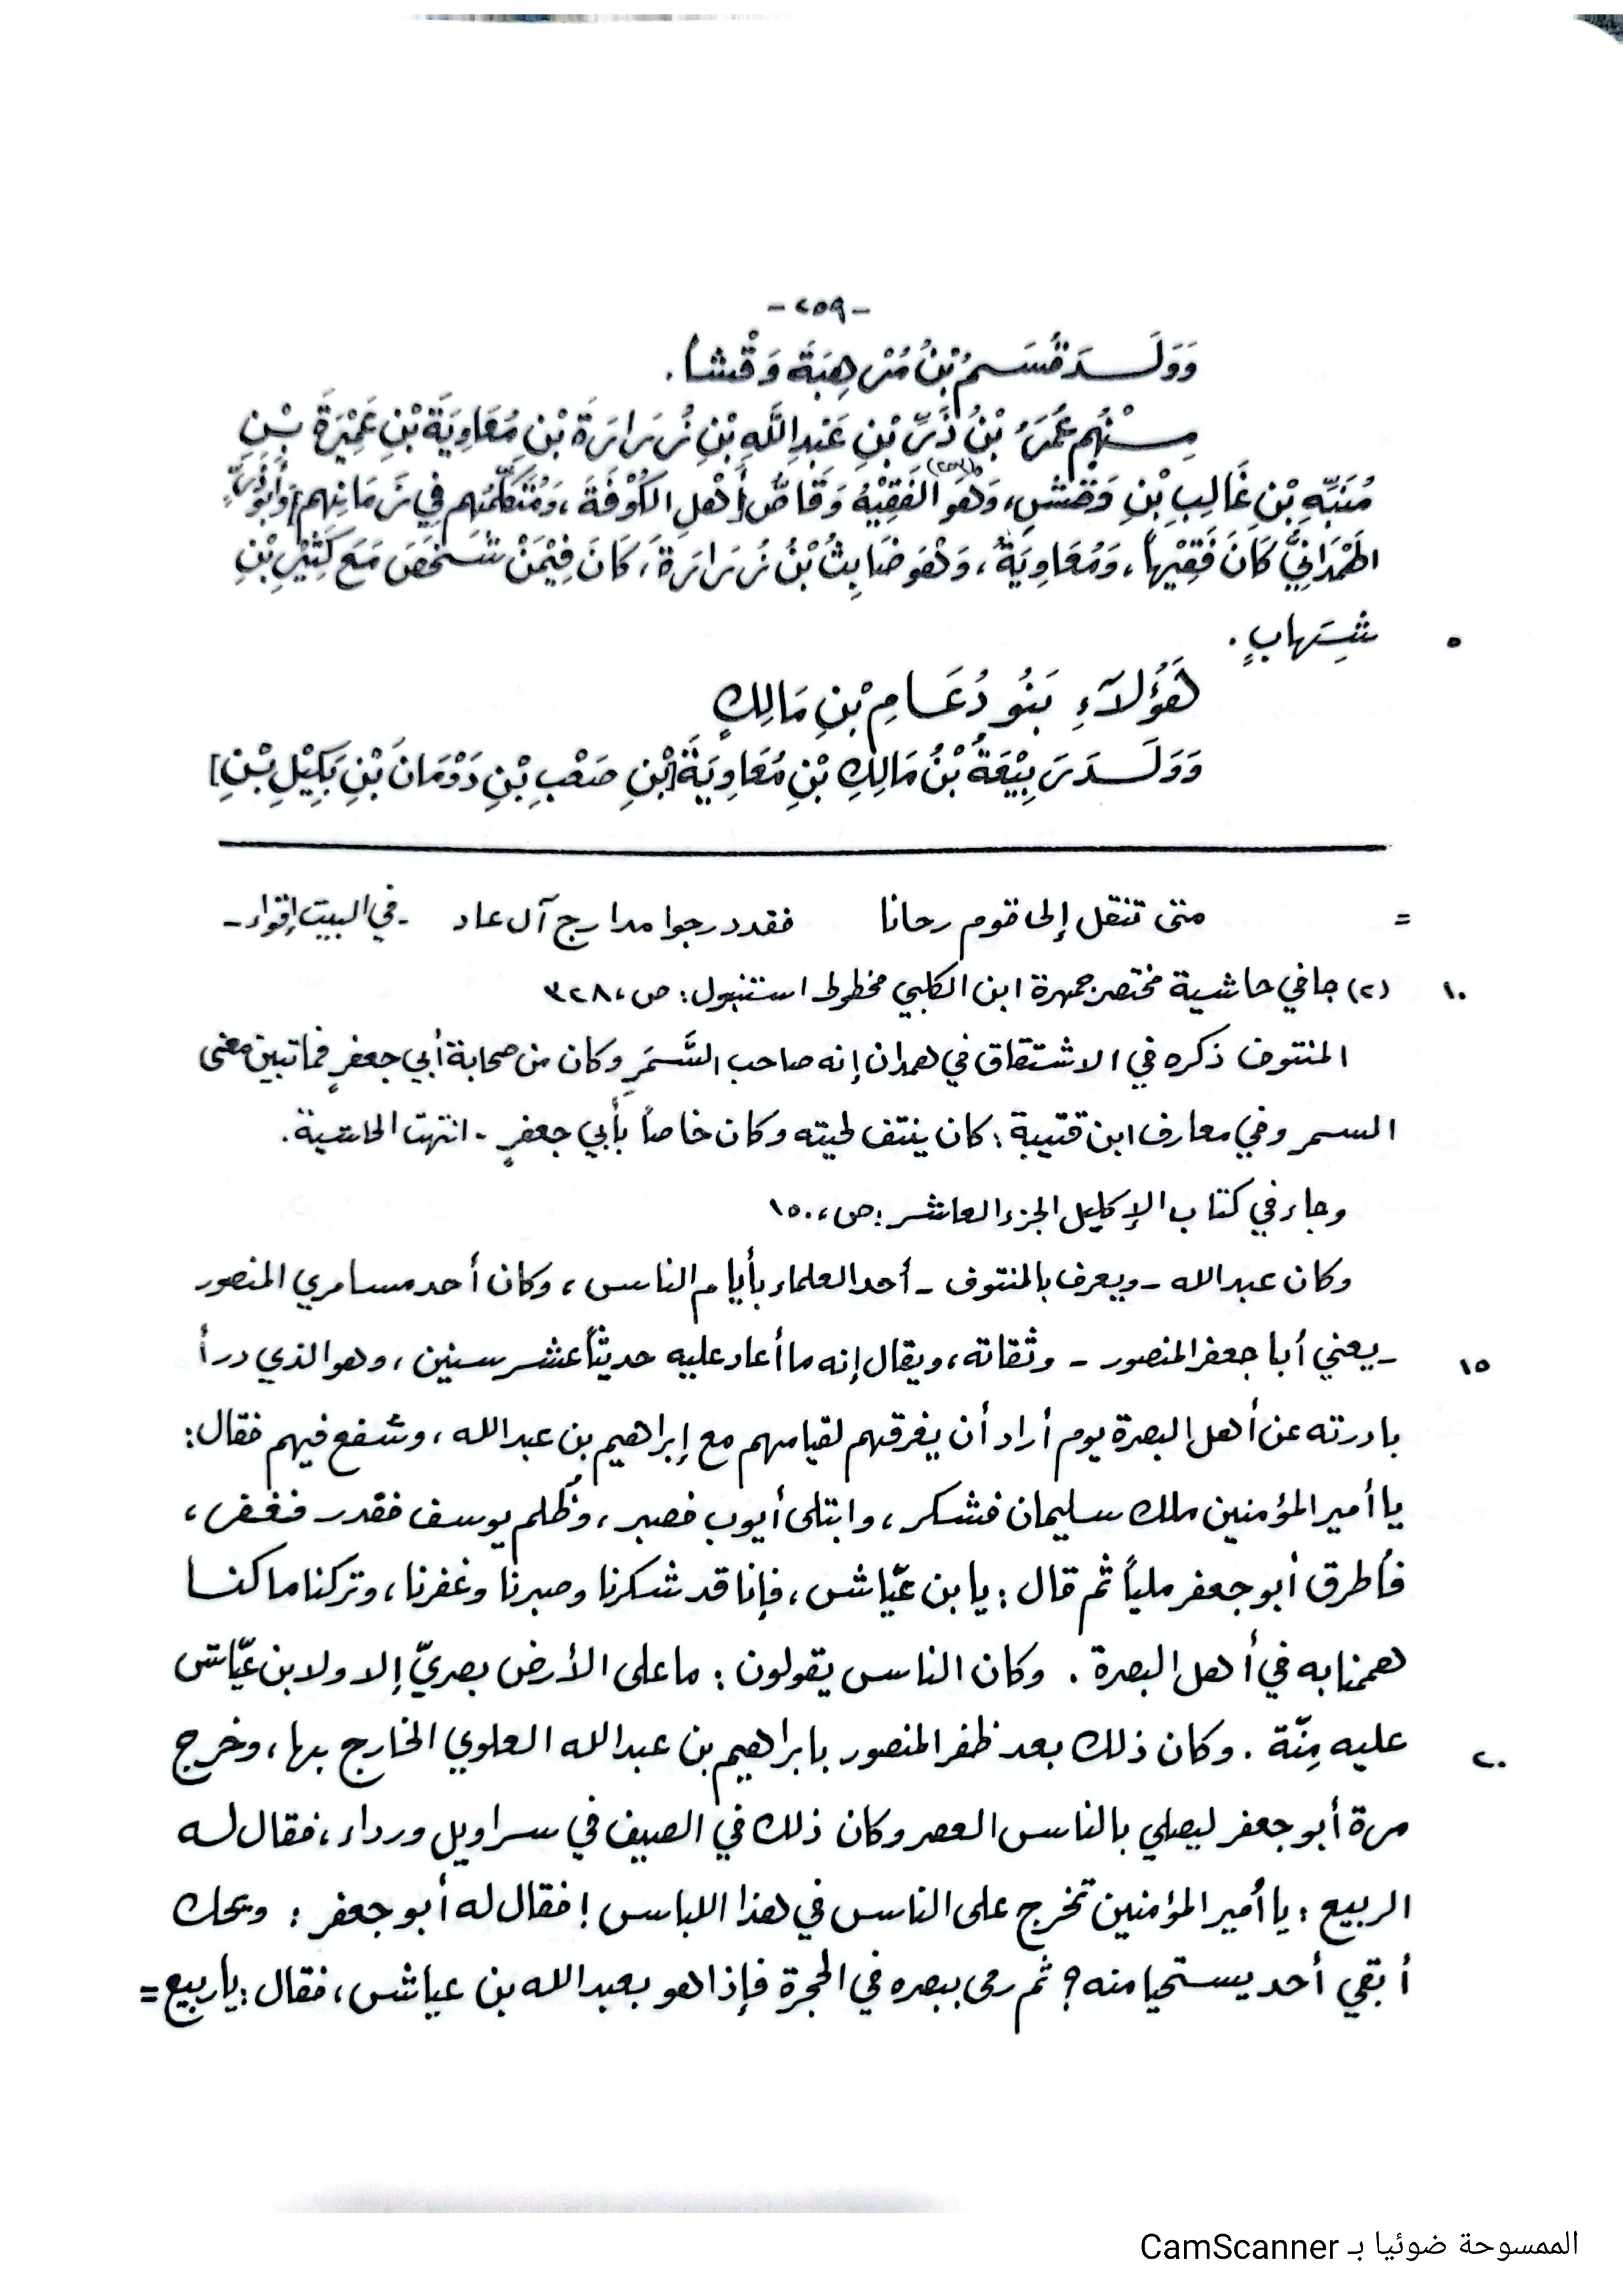 -٢٥٩-
وَوَلَـــدَ قَسَـمُ بْنُ مُرْهِبَةَ وَقْشاً.
مِـنْهُم عُمَرُ بْنُ ذَرِّ بْنِ عَبْدِ اللَّهِ بْنِ زُرَارَةَ بْنِ مُعَاوِيَةَ بْنِ عَمِيْرَةَ بْـنِ
مُنَبِّهِ بْنِ غَالِبِ بْنِ وَقْشٍ، وَهُوَ الفَقِيْهُ وَقَاصُّ أَهْلِ الكُوْفَةَ، وَمُتَكَلِّمُهُم فِي زَمَانِهِم [وَأَبُو ذَرٍّ
الهَمْدَانِيُّ كَانَ فَقِيْهاً، وَمُعَاوِيَةُ، وَهُوَ ضَابِثُ بْنُ زُرَارَةَ، كَانَ فِيْمَنْ شَخَصَ مَعَ كَثِيْرِ بْنِ
شِهَابٍ. ٥
هَؤُلَآءِ بَنُو دُعَـامِ بْنِ مَالِكٍ
وَوَلَـــدَ رَبِيْعَةُ بْنُ مَالِكِ بْنِ مُعَاوِيَةَ [بْنِ صَعْبِ بْنِ دَوْمَانَ بْنِ بَكِيْلِ بْـنِ]
= متى تنقل إلى قوم رحانا فقد درجوا مدارج آل عاد -في البيت إقواء-
١٠ (٢) جا في حاشية مختصر جمهرة ابن الكلبي مخطوط استنبول: ص، ٣٢٨
المنتوف ذكره في الاشتقاق في همدان إنه صاحب السَّمَرِ وكان من صحابة أبي جعفرٍ فما تبين معنى
السمر وفي معارف ابن قتيبة: كان ينتف لحيته وكان خاصاً بأبي جعفرٍ - انتهت الحاشية.
وجاء في كتاب الإكليل الجزء العاشر: ص، ١٥٠
وكان عبد الله - ويعرف بالمنتوف - أحد العلماء بأيام الناس، وكان أحد مسامري المنصور
١٥ - يعني أبا جعفر المنصور - وثقاته، ويقال إنه ما أعاد عليه حديثاً عشر سنين، وهو الذي درأ
بادرته عن أهل البصرة يوم أراد أن يفرقهم لقيامهم مع إبراهيم بن عبد الله، وشفع فيهم فقال:
يا أمير المؤمنين ملك سليمان فشكر، وابتلى أيوب فصبر، وظُلم يوسف فقدر فغفر،
فأطرق أبو جعفر ملياً ثم قال: يا بن عيّاش، فإنا قد شكرنا وصبرنا وغفرنا، وتركنا ما كنـا
هممنا به في أهل البصرة. وكان الناس يقولون: ما على الأرض بصريّ إلا ولابن عيّاش
٢٠ عليه مِنّة. وكان ذلك بعد ظفر المنصور بابراهيم بن عبد الله العلوي الخارج بها، وخرج
مرة أبو جعفر ليصلي بالناس العصر وكان ذلك في الصيف في سراويل ورداء، فقال له
الربيع: يا أمير المؤمنين تخرج على الناس في هذا اللباس! فقال له أبو جعفر: ويحك
أبقي أحد يستحيا منه؟ ثم رمى ببصره في الحجرة فإذا هو بعبد الله بن عياش، فقال: يا ربيع =
الممسوحة ضوئيا بـ CamScanner